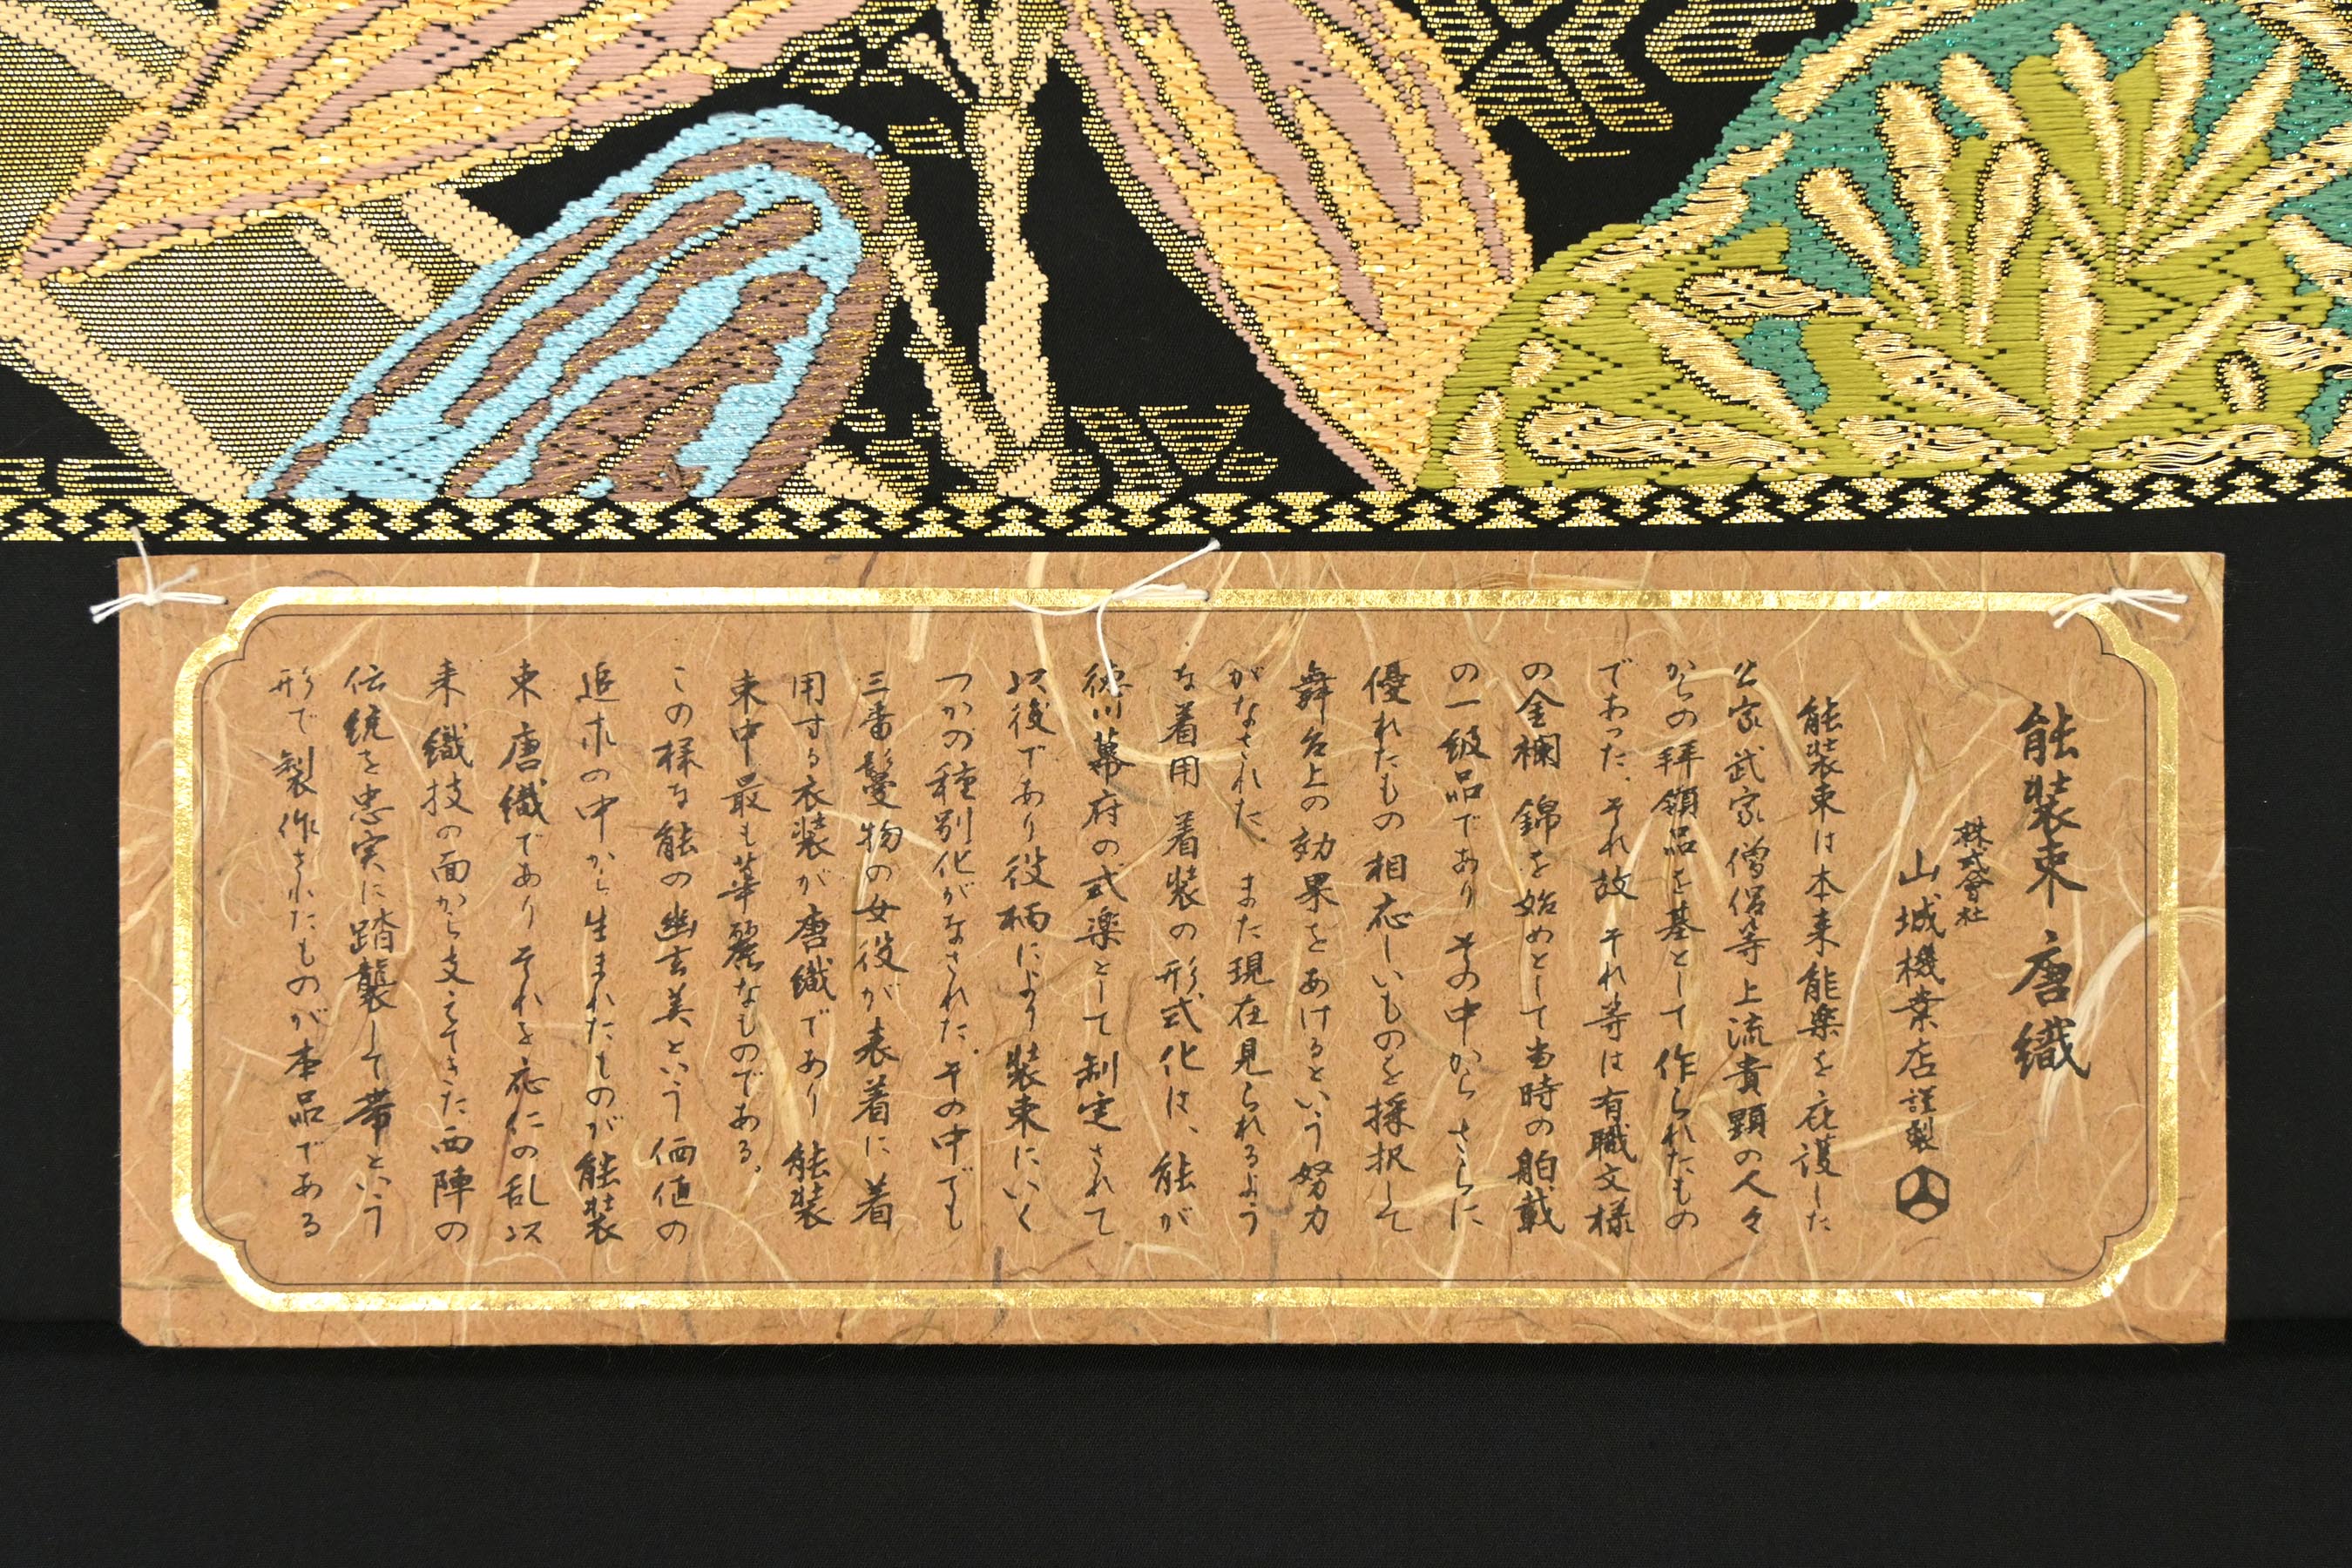 能装束 唐織
株式會社
山城機業店謹製
能装束は本来能楽を庇護した
公家武家僧侶等上流貴顕の人々
からの拝領品を基として作られたもの
であった、それ故それ等は有職文様
の金襴 錦を始めとして当時の舶載
の一級品であり その中からさらに
優れたもの相応しいものを採択して
舞台上の効果をあげるという努力
がなされた、また現在見られるよう
な着用 着装の形式化は、能が
徳川幕府の式楽として制定されて
以後であり役柄により装束にいく
つかの種別化がなされた。その中でも
三番鬘物の女役が表着に着
用する衣装が唐織であり 能装
束中最も華麗なものである。
この様な能の幽玄美という価値の
追求の中から生まれたものが能装
束唐織でありそれを応仁の乱以
来織技の面から支えてきた西陣の
伝統を忠実に踏襲して帯という
形で製作されたものが本品である